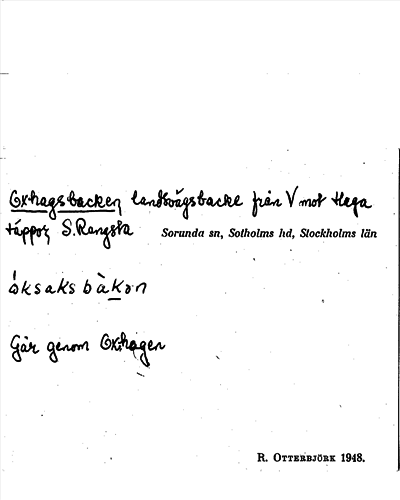 Oxhagsbacken landsvägsbacke från V mot Hega
täppor S. Rangsta Sorunda sn, Sotholms hd, Stockholms län
óksaksbàkən
Går genom Oxhagen
R. OTTERBJÖRK 1948.